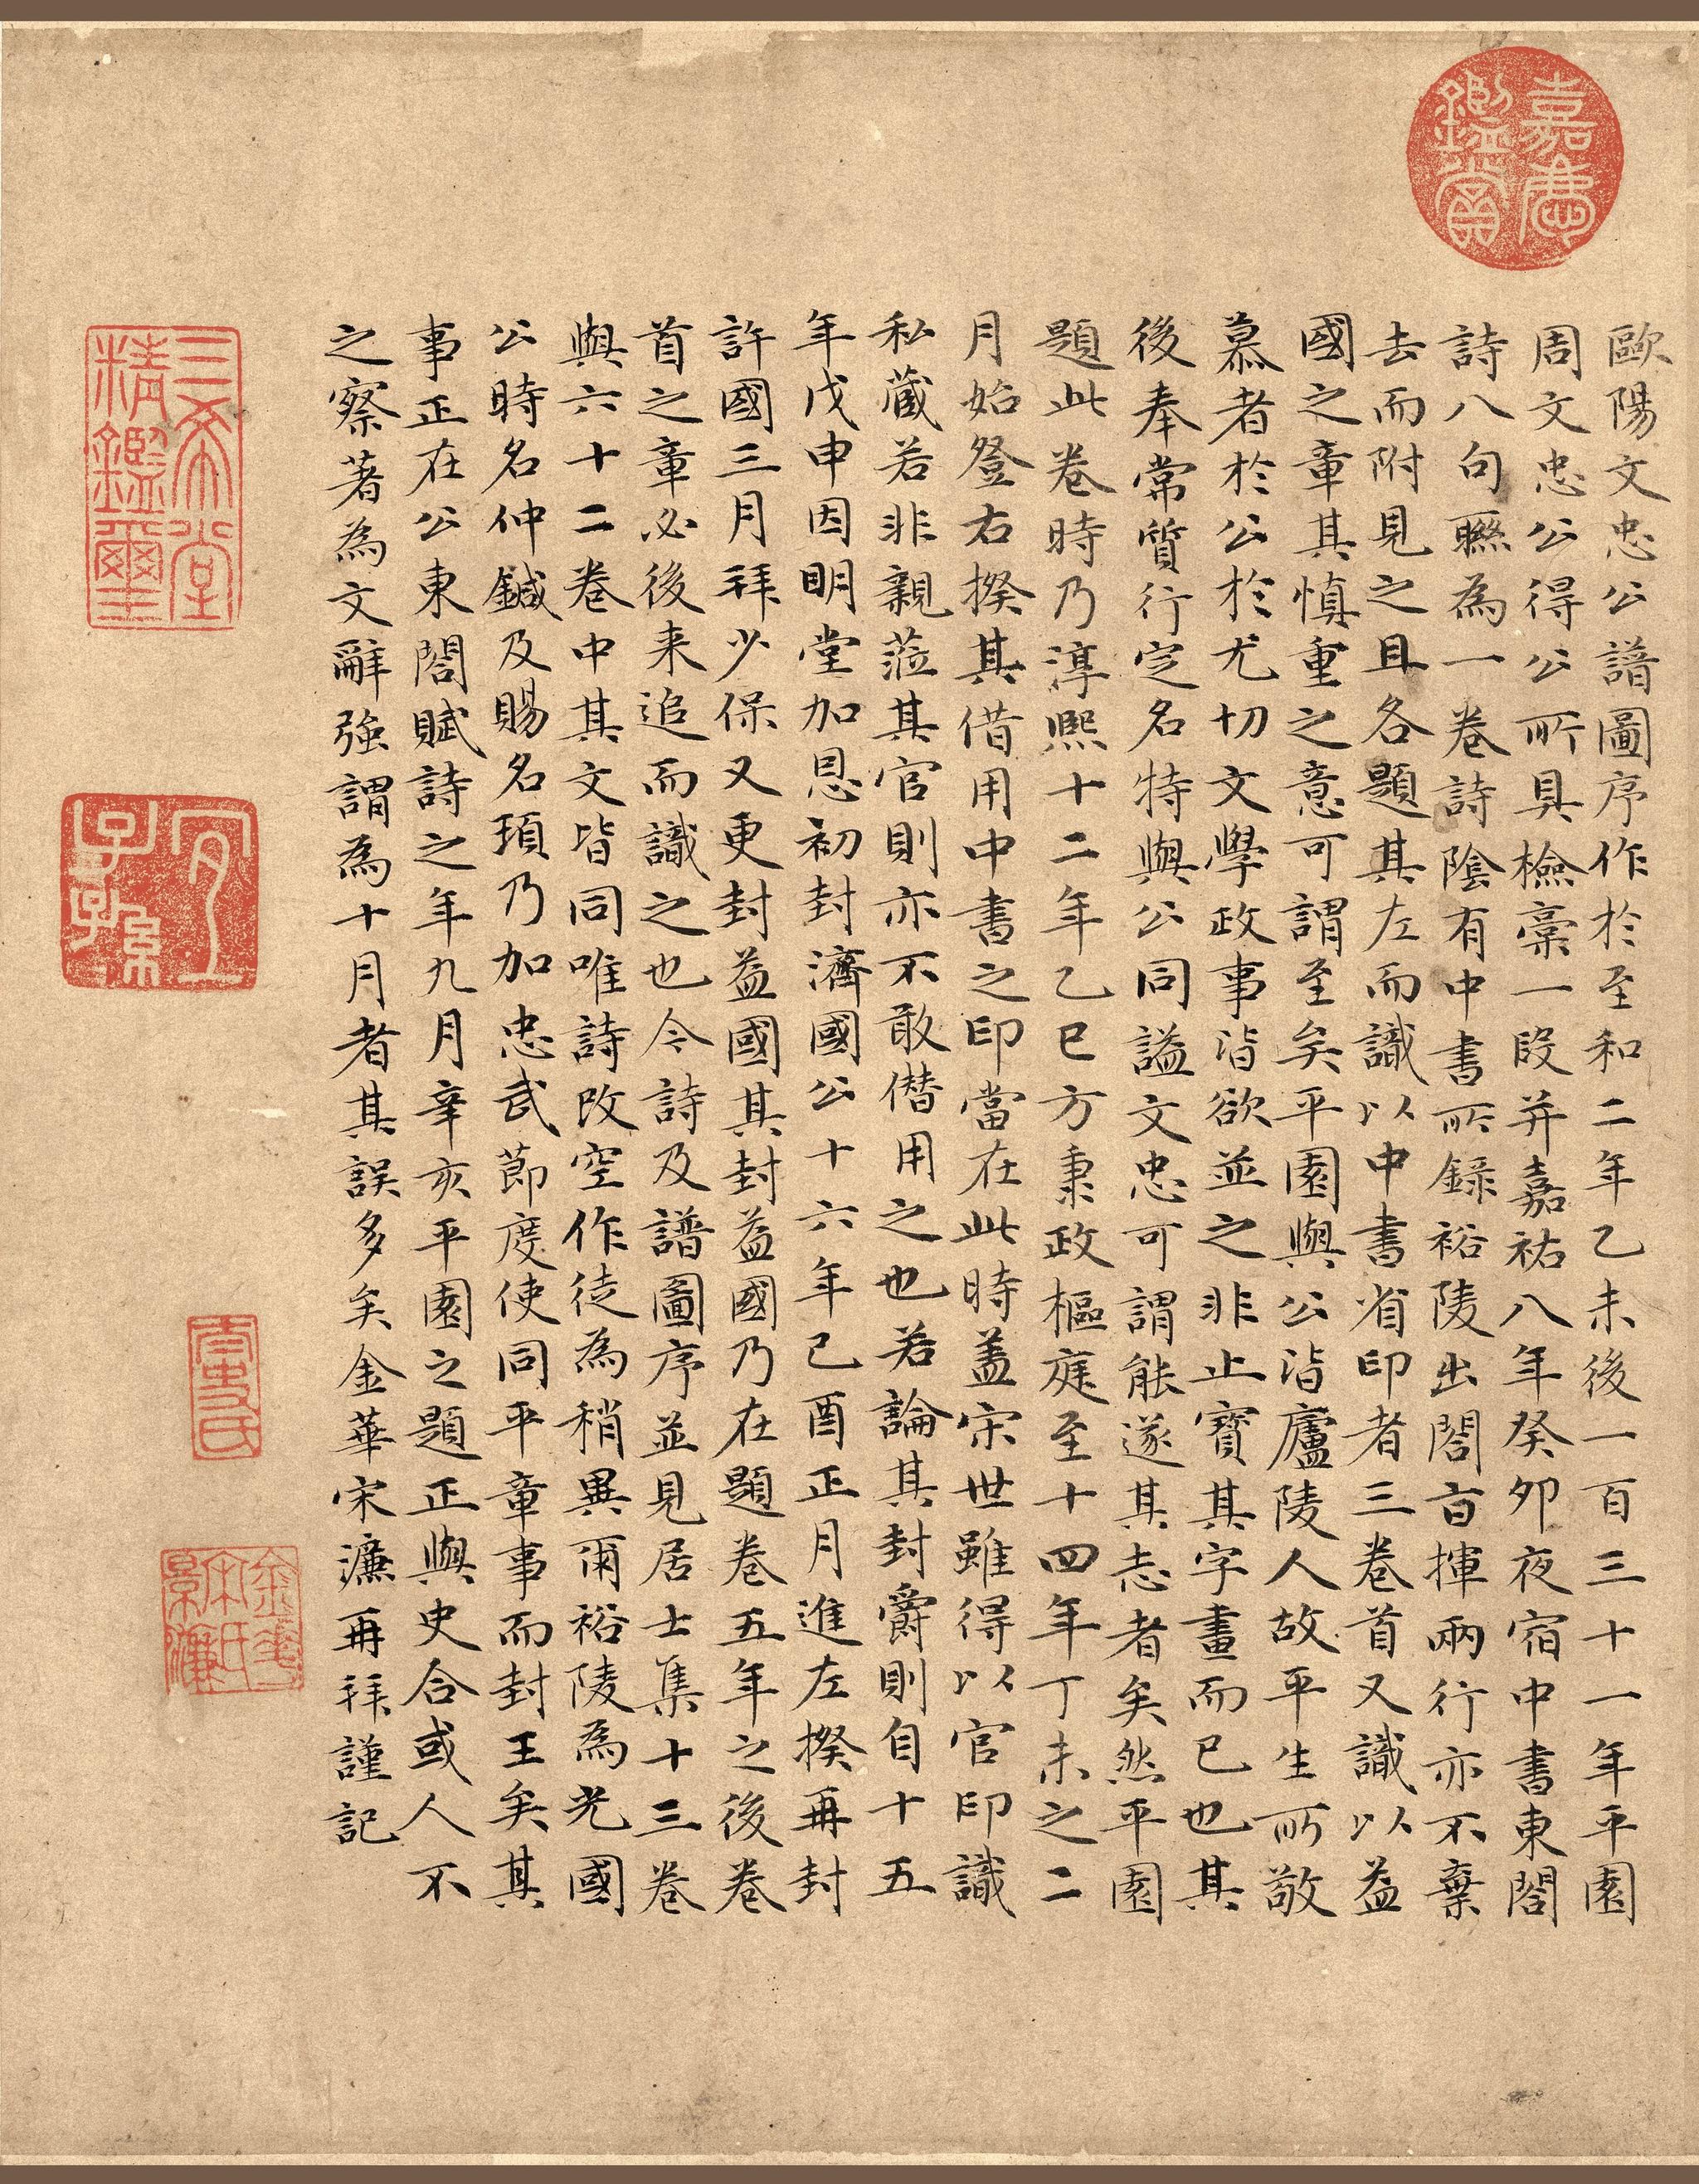 歐陽文忠公譜圖序作於至和二年乙未後一百三十一年平園
周文忠公得公所具檢稾一段并嘉祐八年癸卯夜宿中書東閤
詩八句聮為一卷詩陰有中書所錄裕陵出閤旨揮兩行亦不棄
去而附見之且各題其左而識以中書省印者三卷首又識以益
國之章其慎重之意可謂至矣平園與公皆廬陵人故平生所敬
慕者於公於尤切文學政事皆欲並之非止寳其字畫而已也其
後奉常質行定名特與公同謚文忠可謂能遂其志者矣然平園
題此卷時乃淳熙十二年乙巳方秉政樞庭至十四年丁未之二
月始登右揆其借用中書之印當在此時盖宋世雖得以官印識
私藏若非親蒞其官則亦不敢僭用之也若論其封爵則自十五
年戊申因明堂加恩初封濟國公十六年己酉正月進左揆再封
許國三月拜少保又更封益國其封益國乃在題卷五年之後卷
首之章必後来追而識之也今詩及譜圖序並見居士集十三卷
與六十二卷中其文皆同唯詩改空作徒為稍異爾裕陵為光國
公時名仲鍼及賜名頊乃加忠武節度使同平章事而封王矣其
事正在公東閤賦詩之年九月辛亥平園之題正與史合或人不
之察著為文辭強謂為十月者其誤多矣金華宋濂再拜謹記
嘉慶鑑賞
三希堂精鑑璽
宜子孫
太史氏
金華宋氏景濂